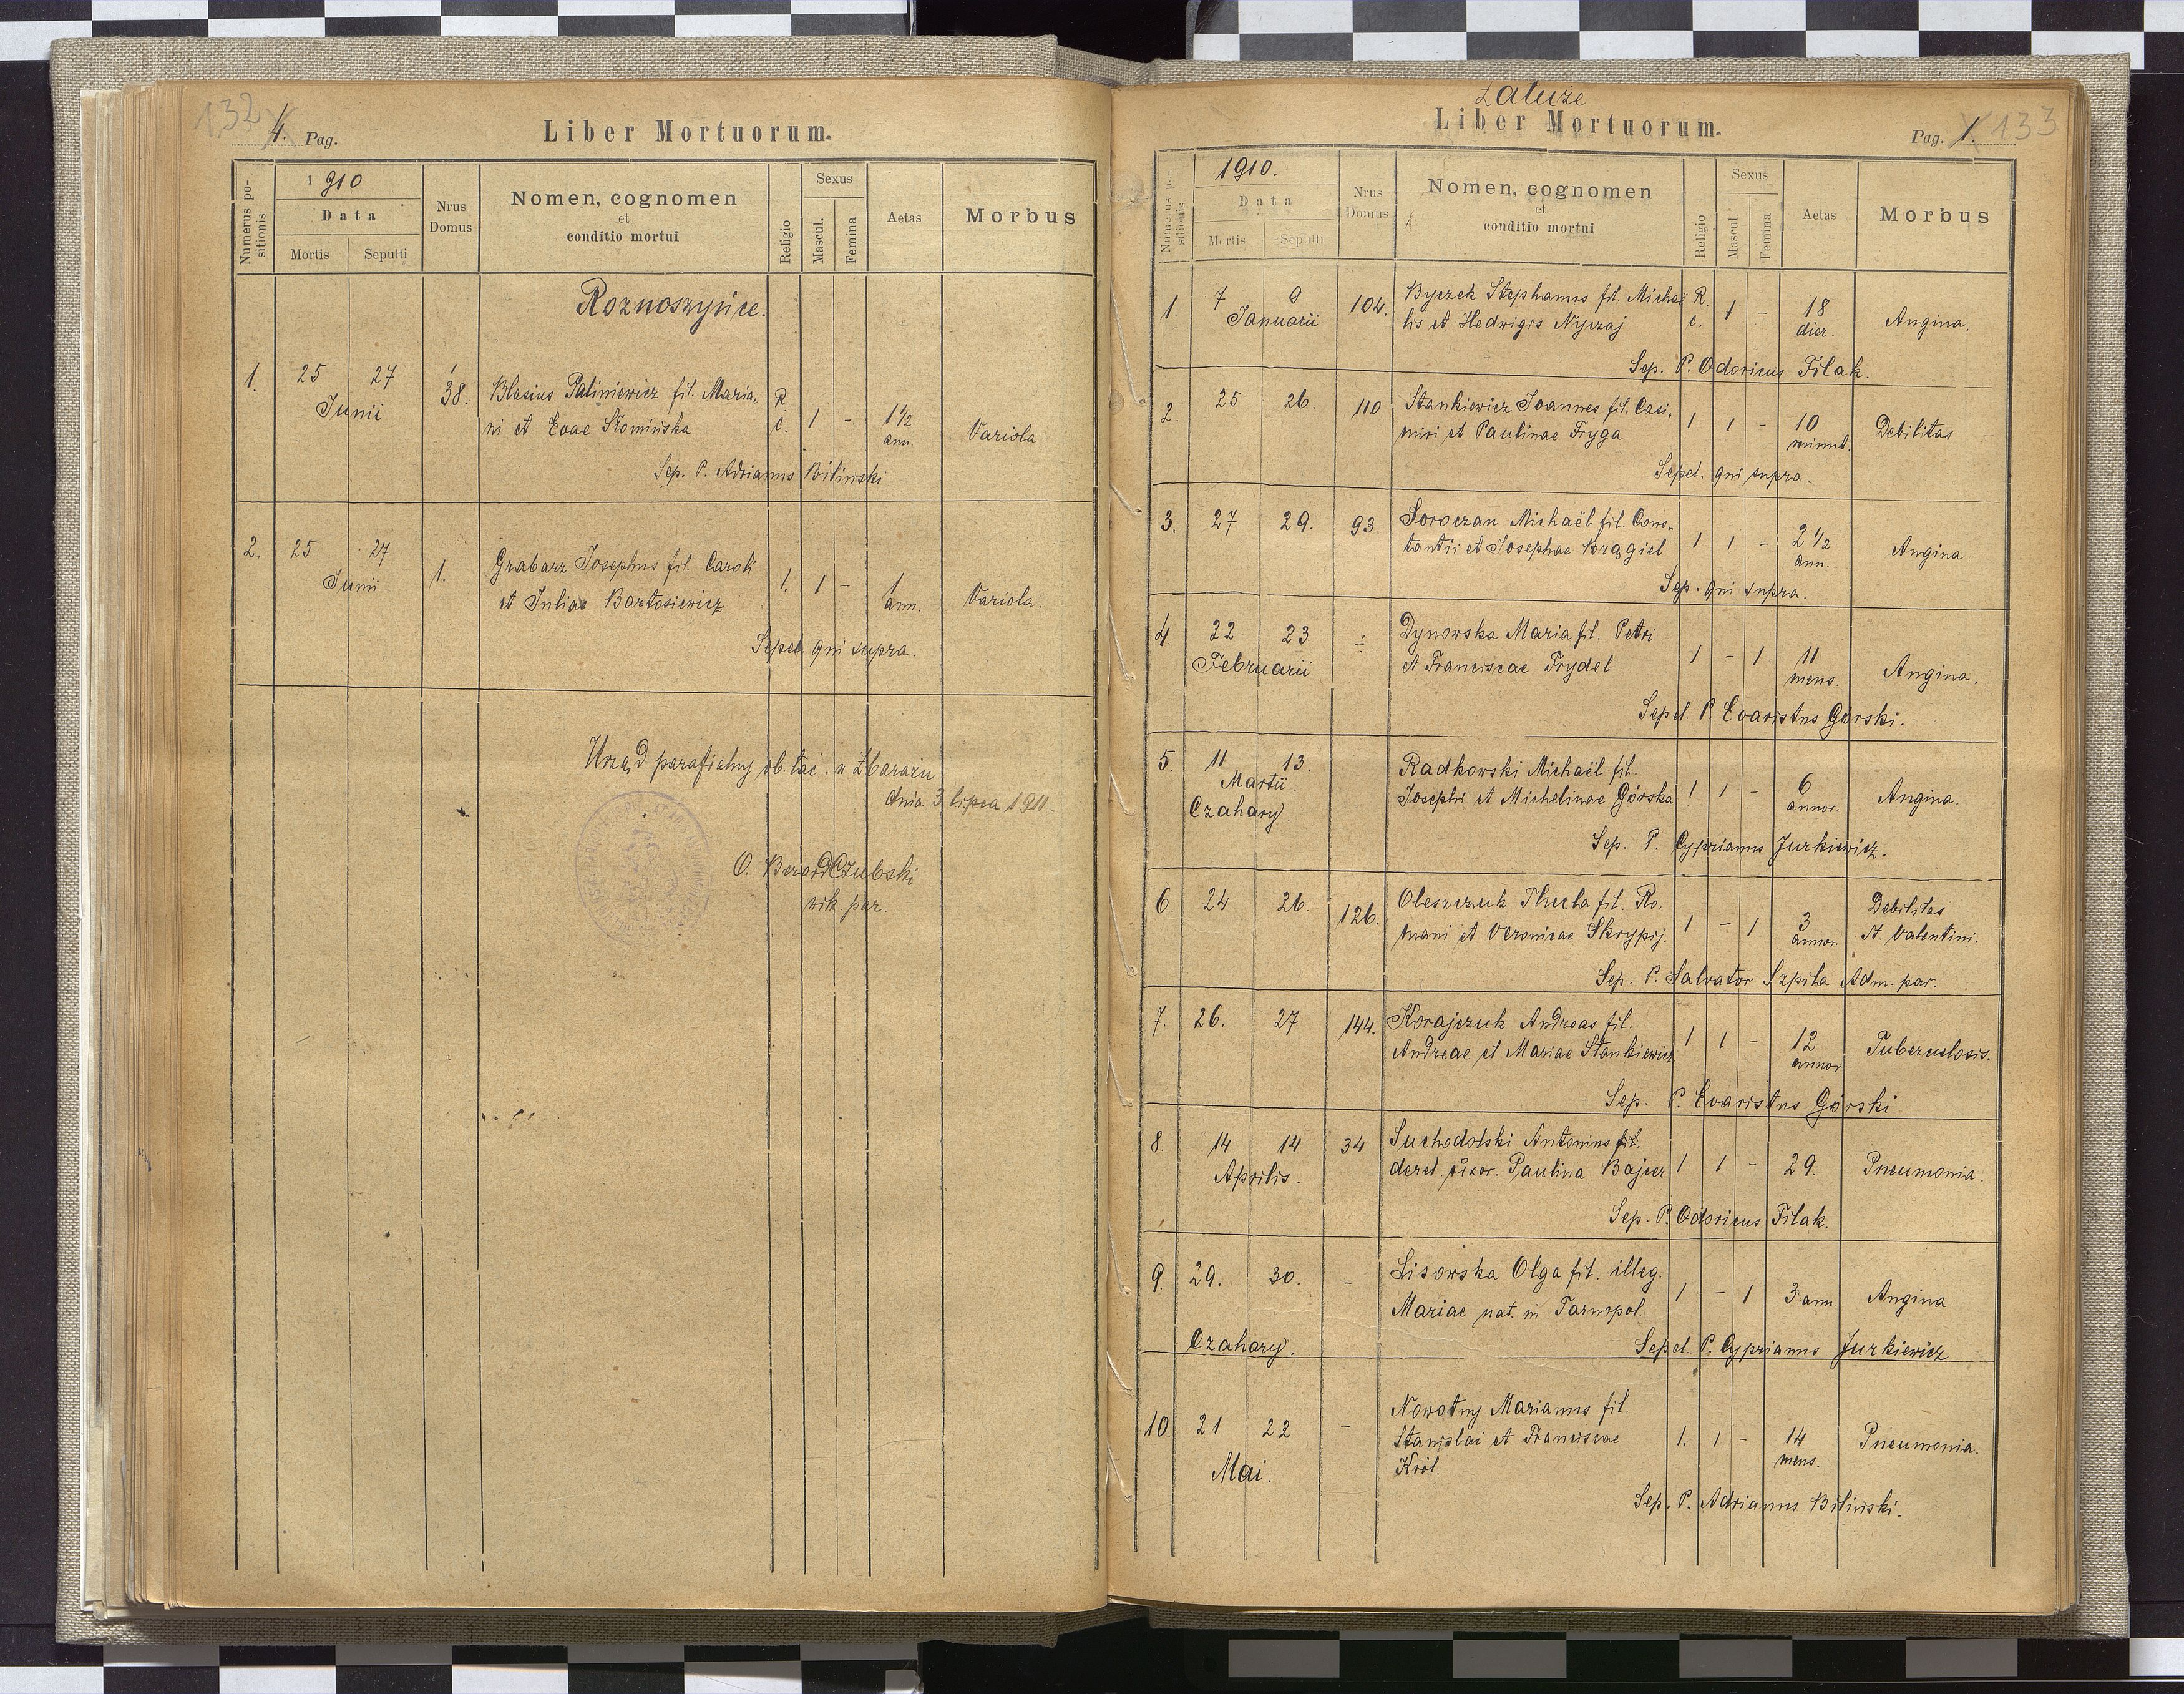 132
4. Pag.
Liber Mortuorum.
Numerus positionis
1910
Data
Mortis Sepulti
Nrus Domus
Nomen, cognomen
et
conditio mortui
Religio
Sexus
Mascul. Femina
Aetas
Morbus
Roznoszyńce.
1. 25 27 Junii 38.
Blasius Paliniewicz fil. Maria-
ni et Evae Słomińska
R. c. 1 - 1½ ann. Variola
Sep. P. Adrianus Biliński
2. 25 27 Junii 1.
Grabarz Josephus fil. Caroli
et Juliae Bartosiewicz
1. 1 - 1 ann. Variola.
Sepel. qui supra.
Urząd parafialny ob. łać. w Zbarażu
dnia 3 lipca 1911.
wik. par.
Załuże
Liber Mortuorum.
Pag. 1. 133
Numerus positionis
1910.
Data
Mortis Sepulti
Nrus Domus
Nomen, cognomen
et
conditio mortui
Religio
Sexus
Mascul. Femina
Aetas
Morbus
1. 7 9 Januarii 104.
Byczek Stephanus fil. Micha-
lis et Hedwigis Nyczaj
R. c. 1 - 18 dier. Angina.
Sep. P. Odoricus Filak.
2. 25 26. 110
Stankiewicz Joannes fil. Casi-
miri et Paulinae Fryga
1 1 - 10 minut. Debilitas
Sepel. qui supra.
3. 27 29. 93
Soroczan Michaël fil. Cons-
tantii et Josephae Brągiel
1 1 - 2½ ann. Angina
Sep. qui supra.
4. 22 23 Februarii ÷
Dynowska Maria fil. Petri
et Franciscae Frydel
1 - 1 11 mens. Angina.
Sepel. P. Evaristus Górski.
5. 11 13. Martii. Czahary.
Radkowski Michaël fil.
Josephi et Michelinae Górska
1 1 - 6 annor. Angina.
Sep. P. Cyprianus Jurkiewicz.
6. 24 26 126.
Oleszczuk Thecla fil. Ro-
mani et Veronicae Skrypij.
1 - 1 3 annor. Debilitas
St. Valentini.
Sep. P. Salvator Szpila Adm. par.
7. 26. 27 144.
Korajczuk Andreas fil.
Andreae et Mariae Stankiewicz
1 1 - 12 annor Tuberculosis.
Sep. P. Evaristus Górski
8. 14 14 Aprilis. 34
Suchodolski Antonius fil.
derel. uxor. Paulina Bajcer
1 1 - 29. Pneumonia.
Sep. P. Odoricus Filak.
9. 29. 30. -
Lisowska Olga fil. illeg.
Mariae nat. in Tarnopol.
1 - 1 3 ann. Angina
Czahary.
Sepel. P. Cyprianus Jurkiewicz
10 21 22 Mai. -
Nowotny Marianus fil.
Stanislai et Franciscae
Król.
1. 1 - 14 mens. Pneumonia.
Sep. P. Adrianus Biliński.